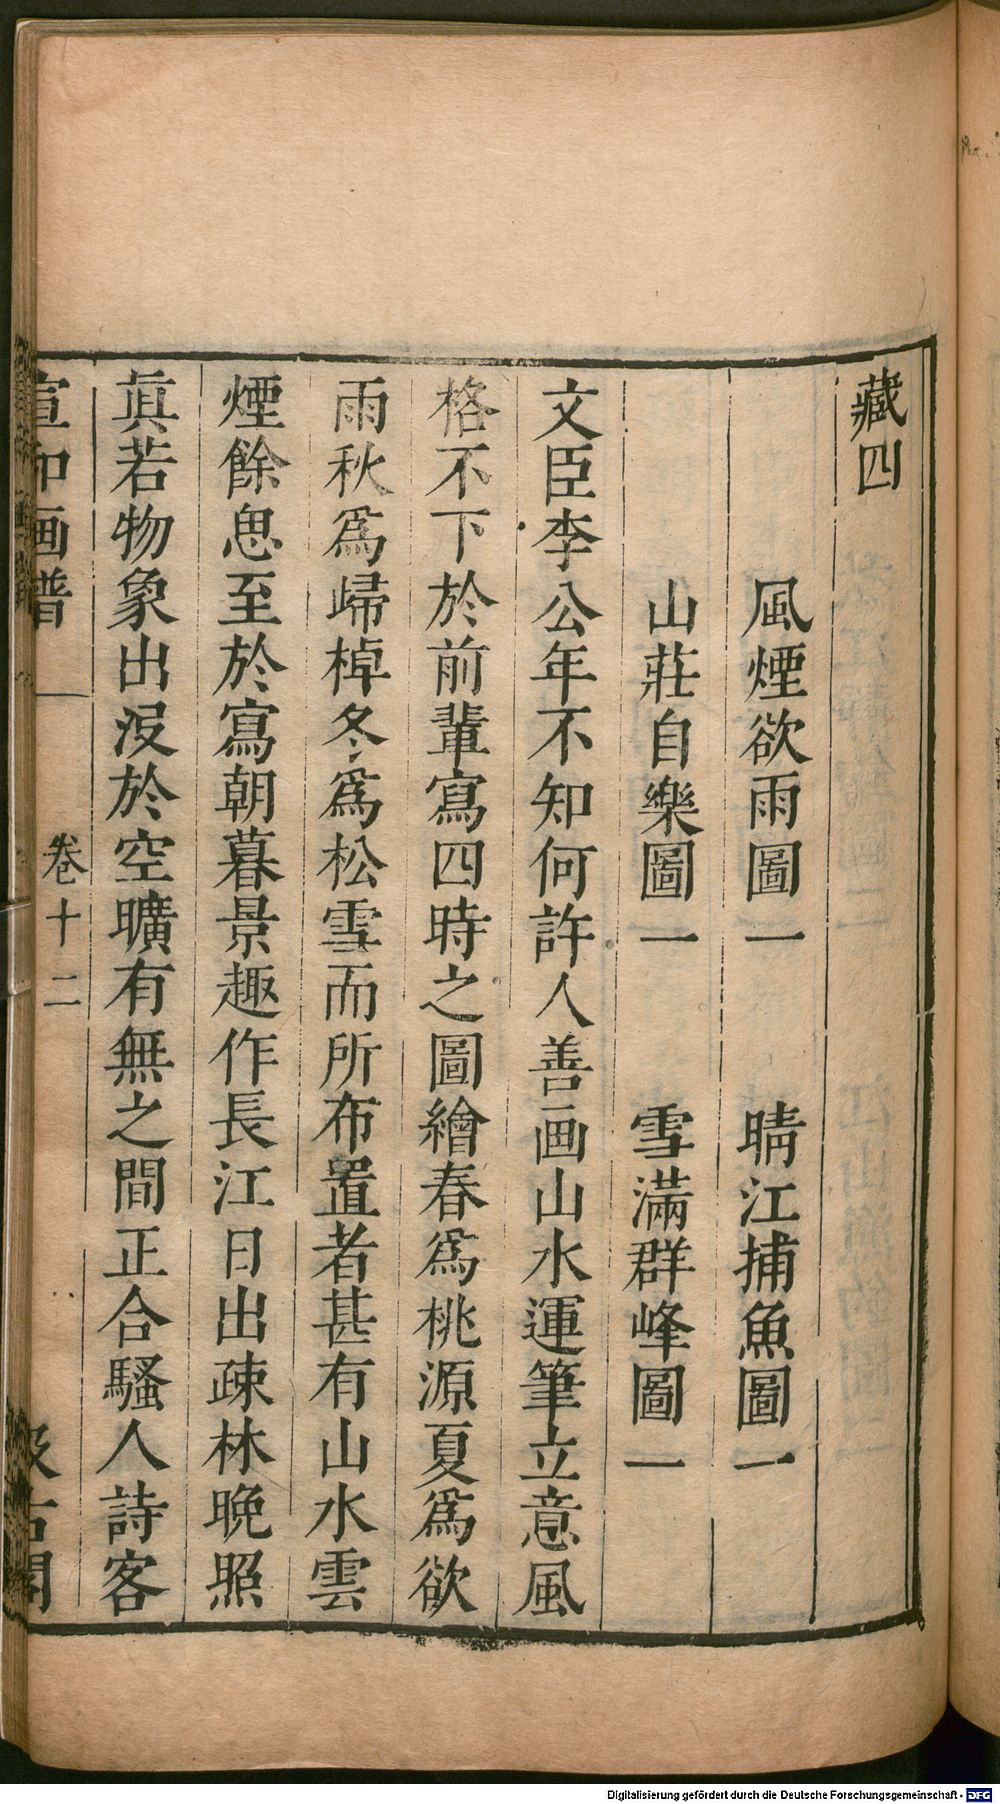 藏四
風煙欲雨圖一　晴江捕魚圖一
山莊自樂圖一　雪滿群峰圖一
文臣李公年不知何許人善画山水運筆立意風
格不下於前輩寫四時之圖繪春爲桃源夏爲欲
雨秋爲歸棹冬爲松雪而所布置者甚有山水雲
煙餘思至於寫朝暮景趣作長江日出疎林晚照
眞若物象出沒於空曠有無之間正合騷人詩客
宣和画譜　卷十二　汲古閣
Digitalisierung gefördert durch die Deutsche Forschungsgemeinschaft - DFG